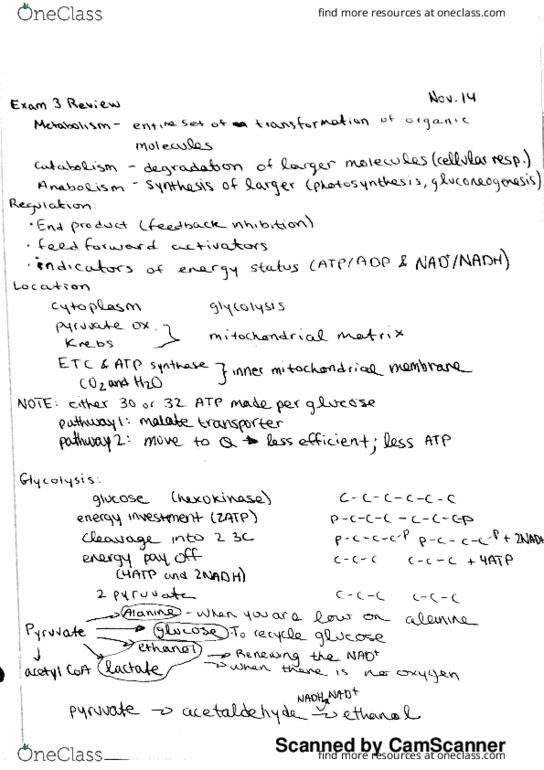 OneClass
find more resources at oneclass.com
Nov. 14
Exam 3 Review
Metabolism - entire set of transformation of organic
molecules
Catabolism - degradation of larger molecules (cellular resp.)
Anabolism - synthesis of larger (photosynthesis, gluconeogenesis)
Regulation:
· End product (feedback nhibition)
· feed forward activators
· indicators of energy status (ATP/ADP & NAD⁺/NADH)
Location
cytoplasm glycolysis
pyruvate ox. } mitochondrial matrix
Krebs
ETC & ATP synthase } inner mitochondrial membrane
CO2 and H2O
NOTE: either 30 or 32 ATP made per glucose
pathway 1: malate transporter
pathway 2: move to Q → less efficient; less ATP
Glycolysis:
glucose (hexokinase) C-C-C-C-C-C
energy investment (2ATP) P-C-C-C-C-C-C-P
cleavage into 2 3C P-C-C-C-P P-C-C-C-P + 2NADH
energy pay off C-C-C C-C-C + 4ATP
(4ATP and 2NADH)
2 pyruvate C-C-C C-C-C
Alanine - when you are low on alanine
Pyruvate → glucose To recycle glucose
ethanol → Renewing the NAD⁺
acetyl CoA lactate → when there is no oxygen
NADH NAD⁺
pyruvate → acetaldehyde → ethanol
Scanned by CamScanner
OneClass
find more resources at oneclass.com